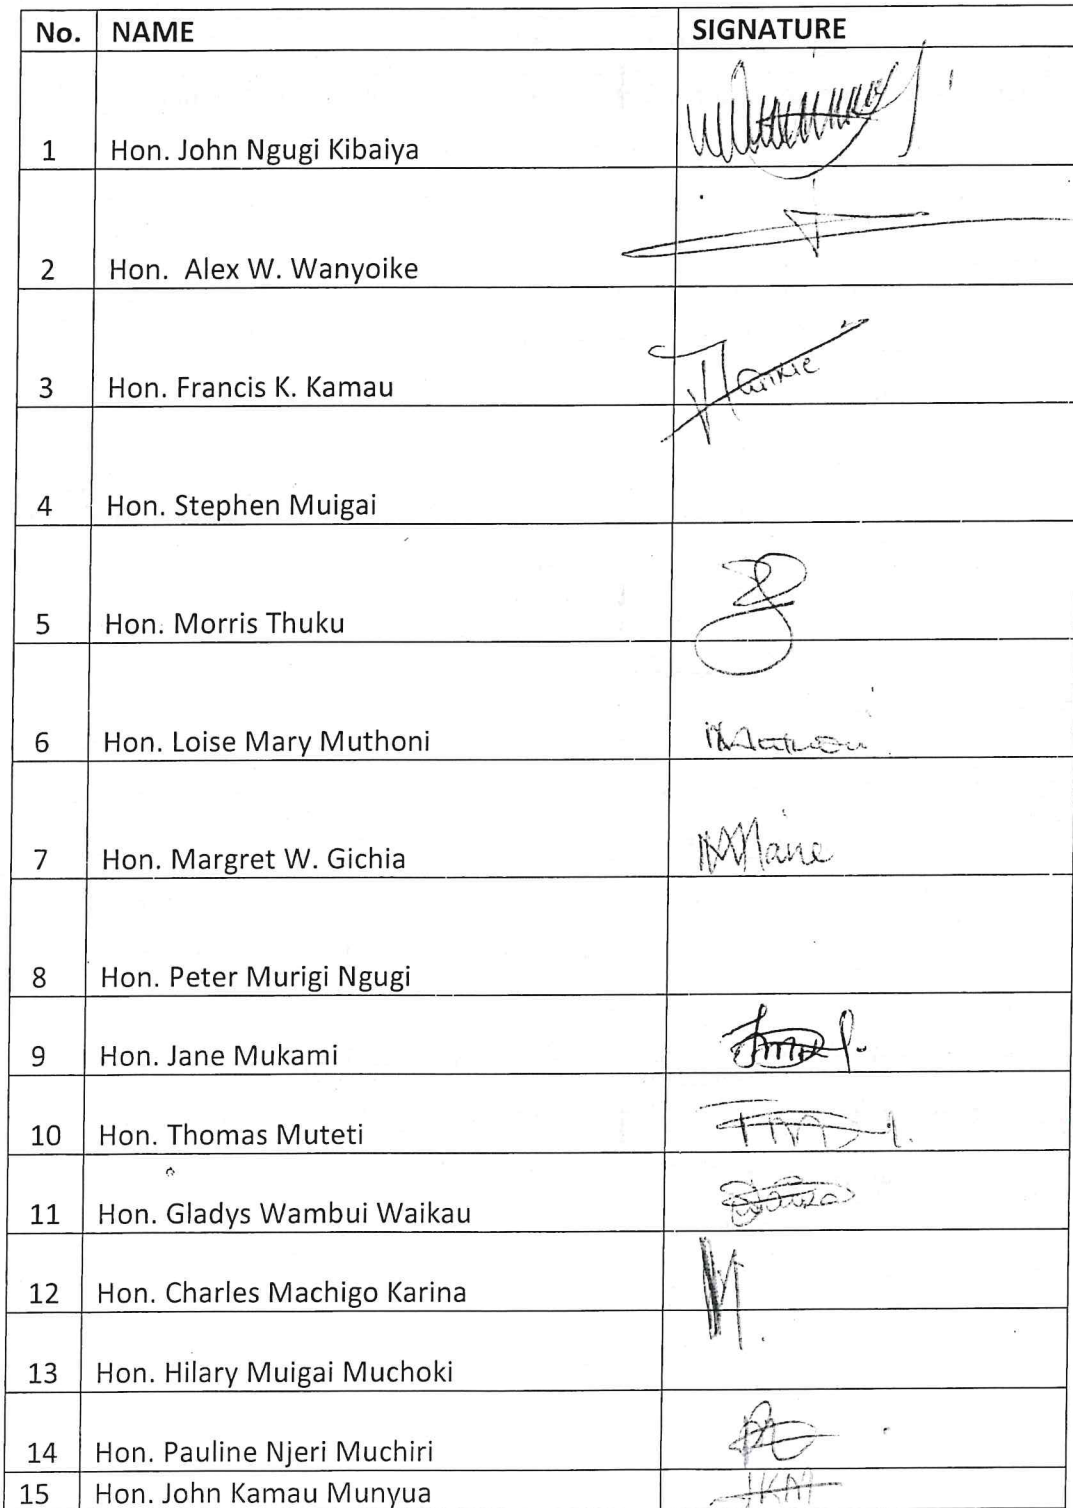 No. NAME SIGNATURE
1 Hon. John Ngugi Kibaiya
2 Hon. Alex W. Wanyoike
3 Hon. Francis K. Kamau
4 Hon. Stephen Muigai
5 Hon. Morris Thuku
6 Hon. Loise Mary Muthoni
7 Hon. Margret W. Gichia
8 Hon. Peter Murigi Ngugi
9 Hon. Jane Mukami
10 Hon. Thomas Muteti
11 Hon. Gladys Wambui Waikau
12 Hon. Charles Machigo Karina
13 Hon. Hilary Muigai Muchoki
14 Hon. Pauline Njeri Muchiri
15 Hon. John Kamau Munyua